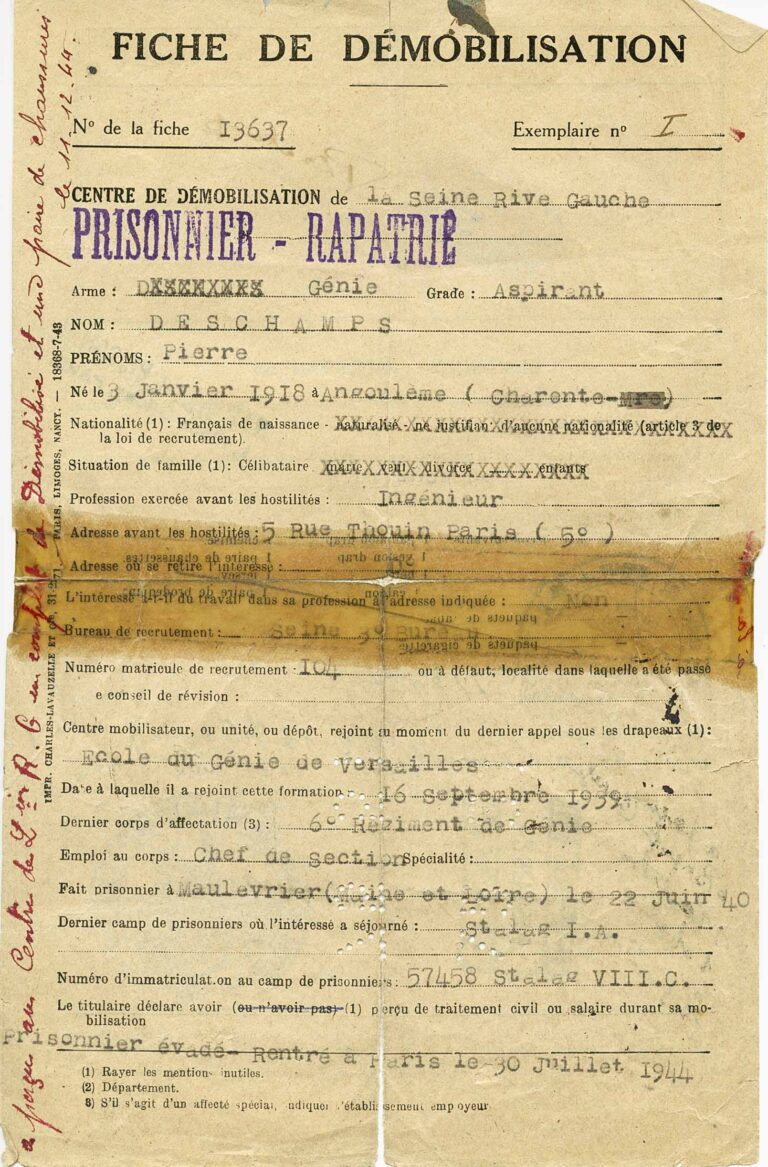 FICHE DE DÉMOBILISATION
N° de la fiche 13637
Exemplaire n° I
CENTRE DE DÉMOBILISATION de la Seine Rive Gauche
PRISONNIER - RAPATRIÉ
Arme : Génie Grade : Aspirant
NOM : DESCHAMPS
PRÉNOMS : Pierre
Né le 3 Janvier 1918 à Angoulême ( Charente-Mre)
Nationalité (1) : Français de naissance - naturalisé - ne justifiant d'aucune nationalité (article 3 de
la loi de recrutement).
Situation de famille (1) : Célibataire marié veuf divorcé enfants
Profession exercée avant les hostilités : Ingénieur
Adresse avant les hostilités : 5 Rue Thouin Paris ( 5° )
Adresse où se retire l'intéressé :
L'intéressé a-t-il du travail dans sa profession à l'adresse indiquée : Non
Bureau de recrutement : Seine 3° Bureau
Numéro matricule de recrutement : 104 ou à défaut, localité dans laquelle a été passé
e conseil de révision :
Centre mobilisateur, ou unité, ou dépôt, rejoint au moment du dernier appel sous les drapeaux (1) :
Ecole du Génie de Versailles
Date à laquelle il a rejoint cette formation : 16 Septembre 1939
Dernier corps d'affectation (3) : 6° Régiment de Génie
Emploi au corps : Chef de Section Spécialité :
Fait prisonnier à Maulevrier (Maine et Loire) le 22 Juin 40
Dernier camp de prisonniers où l'intéressé a séjourné : Stalag I.A.
Numéro d'immatriculat.on au camp de prisonniers : 57458 Stalag VIII.C.
Le titulaire déclare avoir (ou n'avoir pas) (1) perçu de traitement civil ou salaire durant sa mo-
bilisation
Prisonnier évadé- Rentré à Paris le 30 Juillet 1944
(1) Rayer les mentions inutiles.
(2) Département.
3) S'il s'agit d'un affecté spécial, indiquer l'établissement employeur
IMPR. CHARLES-LAVAUZELLE ET Cie, PARIS, LIMOGES, NANCY. — 18368-7-43
a perçu au Centre de L. R. G un complet de Démobilisé et une paire de chaussures
le 11.12.44.